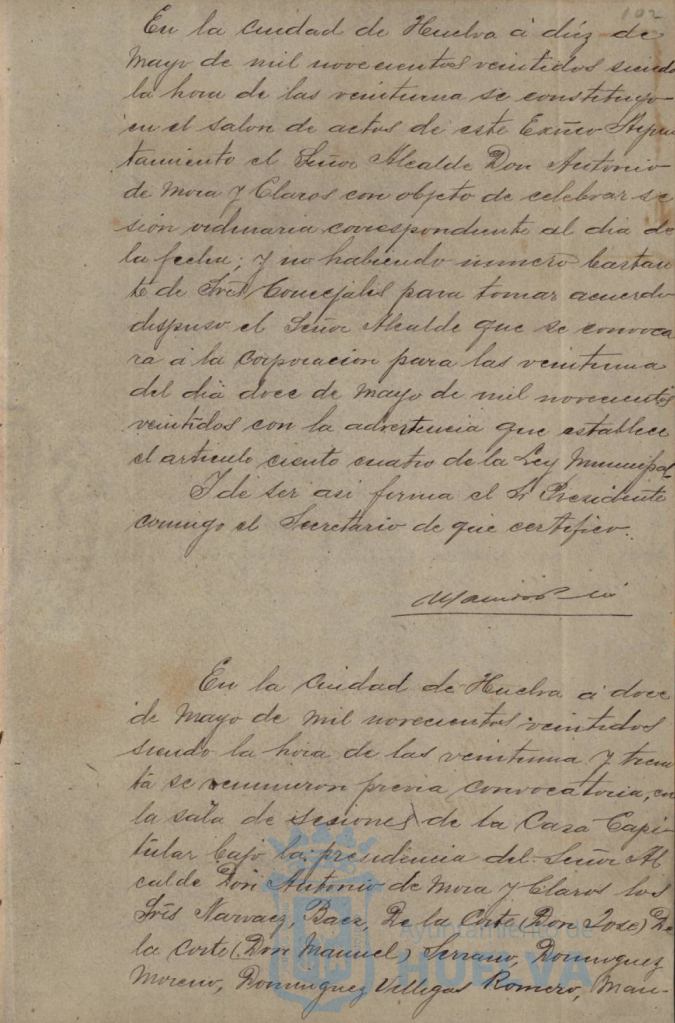 102
En la ciudad de Huelva á diéz de
Mayo de mil novecientos veintidos siendo
la hora de las veintiuna se constituyo
en el salon de actos de este Exmo Ayun
tamiento el Señor Alcalde Don Antonio
de Mora y Claros con objeto de celebrar se
sión ordinaria correspondiente al dia de
la fecha; y no habiendo número bastan
te de Srés Concejales para tomar acuerdo
dispuso el Señor Alcalde que se convoca
ra á la Corporacion para las veintiuna
del dia doce de Mayo de mil novecientos
veintidos con la advertencia que establece
el articulo ciento cuatro de la Ley Municipal
I de ser asi firma el Sr Presidente
conmigo el Secretario de que certifico.
En la ciudad de Huelva á doce
de Mayo de mil novecientos veintidos
siendo la hora de las veintiuna y trein
ta se reunieron previa convocatoria, en
la sala de sesiones de la Casa Capi
tular bajo la presidencia del Señor Al
calde Don Antonio de Mora y Claros los
Srés Narvaez, Baez, De la Corte (Don José) De
la Corte (Don Manuel) Serrano, Dominguez
Moreno, Dominguez Villegas Romero, Man-
Ayuntamiento de
HUELVA